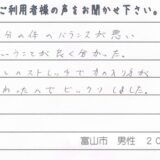 ご利用者様の声をお聞かせ下さい。
分の体のバランスが悪い
いうことが良く分かった。
しのストレッチで力の入り方が
わったのでビックリしました。
富山市 男性 20